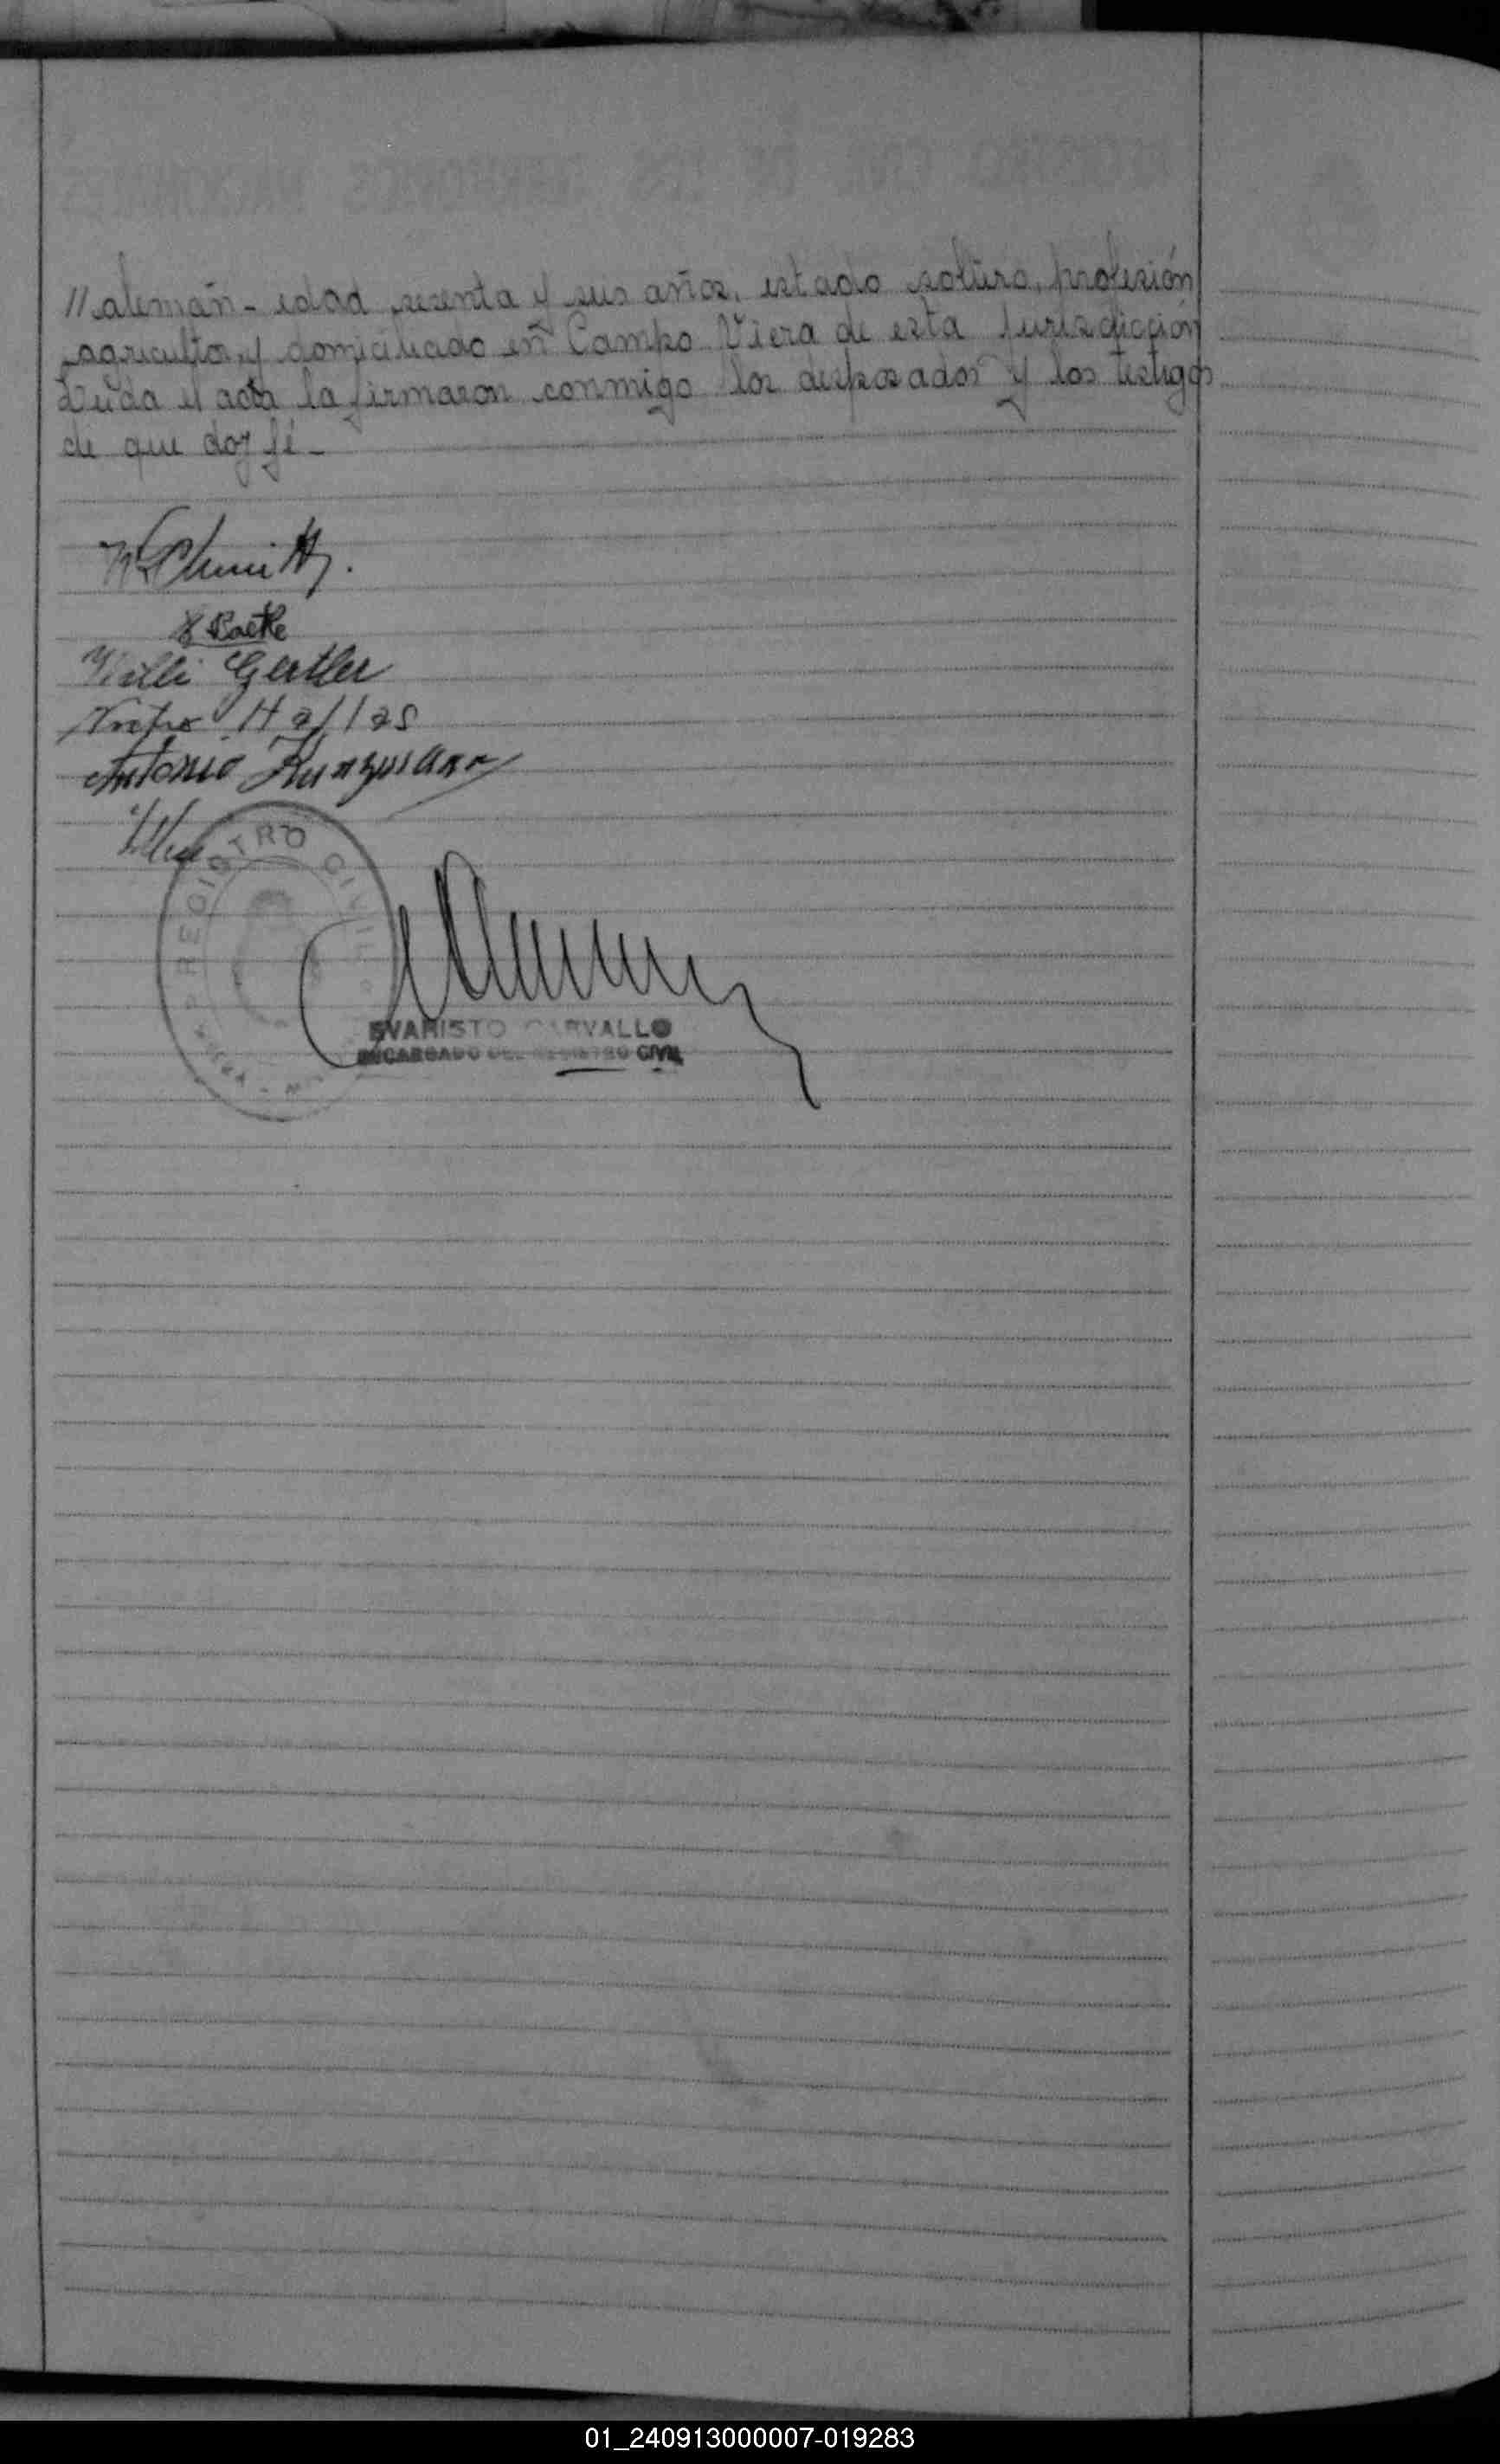 // alemán - edad sesenta y seis años, estado soltero, profesión
agricultor, y domiciliado en Campo Viera de esta Jurisdicción
Leída el acta la firmaron conmigo los desposados y los testigos
de que doy fé -
Willi Gertler
Antonio Kunzmann
REGISTRO CIVIL
EVARISTO CARVALLO
ENCARGADO DEL REGISTRO CIVIL
01_240913000007-019283